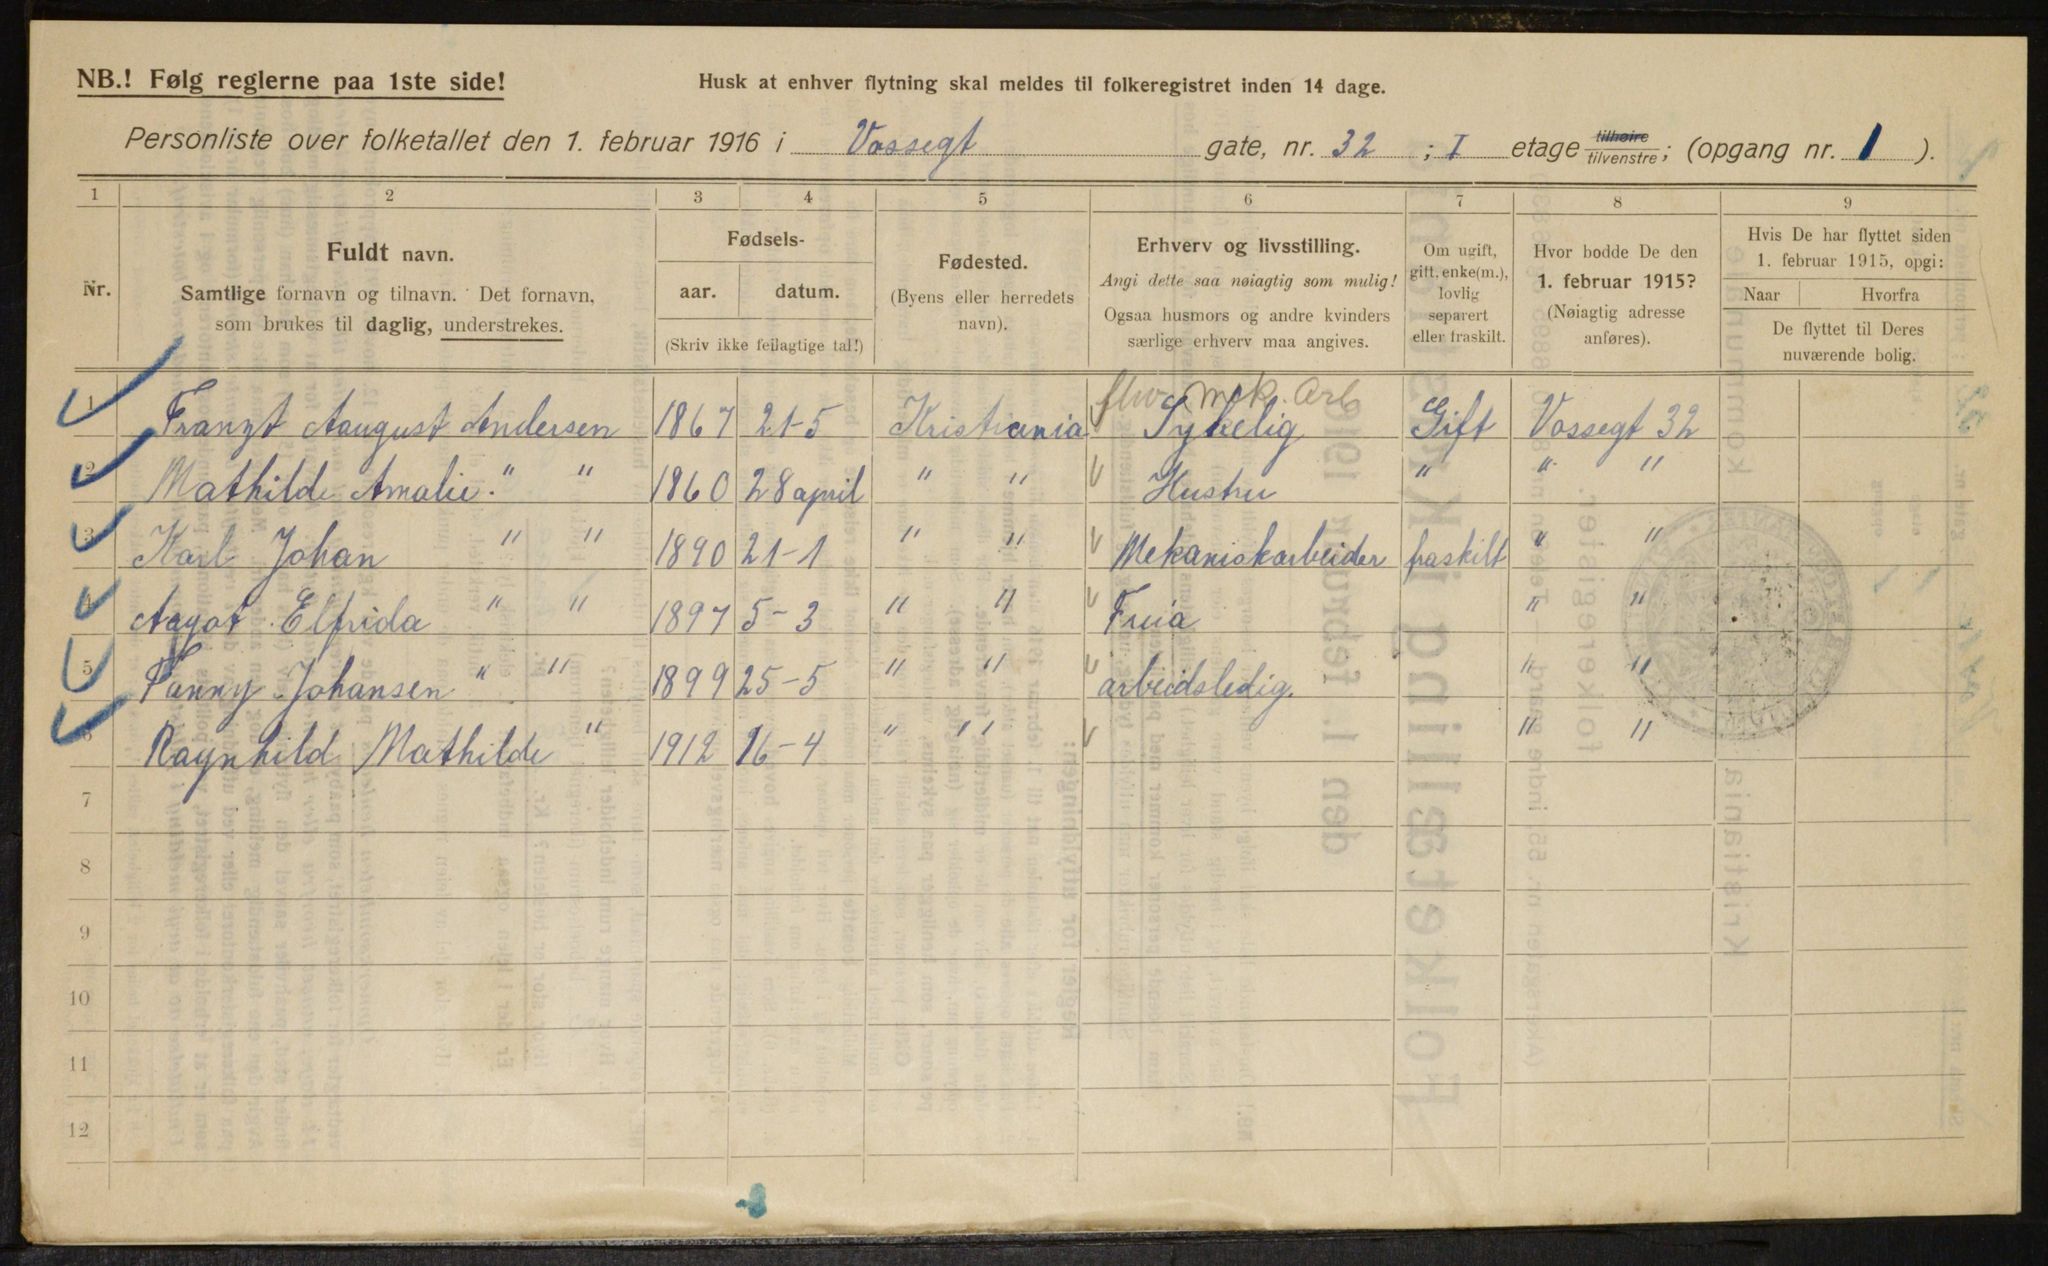 NB.! Følg reglerne paa 1ste side!
Husk at enhver flytning skal meldes til folkeregistret inden 14 dage.
Personliste over folketallet den 1. februar 1916 i Vossegt gate, nr. 32 ; I etage tilhøire tilvenstre; (opgang nr. 1 ).
1 2 3 4 5 6 7 8 9
Nr.
Fuldt navn.
Samtlige fornavn og tilnavn. Det fornavn,
som brukes til daglig, understrekes.
Fødsels-
aar. datum.
(Skriv ikke feilagtige tal!)
Fødested.
(Byens eller herredets
navn).
Erhverv og livsstilling.
Angi dette saa nøiagtig som mulig!
Ogsaa husmors og andre kvinders
særlige erhverv maa angives.
Om ugift,
gift, enke(m.),
lovlig
separert
eller fraskilt.
Hvor bodde De den
1. februar 1915?
(Nøiagtig adresse
anføres).
Hvis De har flyttet siden
1. februar 1915, opgi:
Naar Hvorfra
De flyttet til Deres
nuværende bolig.
mek. arb
1 Franzt Aaugust Andersen 1867 21-5 Kristiania Sykelig Gift Vossegt 32
2 Mathilde Amalie " " 1860 28 april " " Hustru " " "
3 Karl Johan " " 1890 21-1 " " Mekaniskarbeider fraskilt " "
4 Aagot Elfrida " " 1897 5-3 " " Freia " "
5 Fanny Johansen " " 1899 25-5 " " arbeidsledig. " "
6 Ragnhild Mathilde " 1912 16-4 " " " "
7
8
9
10
11
12